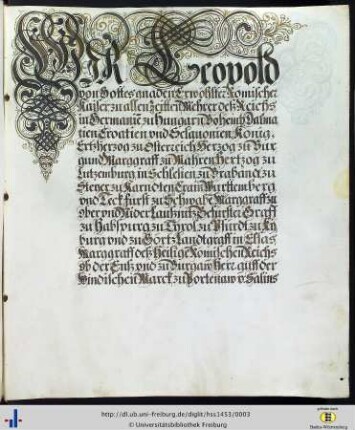 WIR Leopold
von Gottes gnaden Erwöhlter Römischer
Kaiser zu allen Zeitten Mehrer deß Reichs
in Germanie zu Hungarn Boheimb Dalma
tien Croatien und Sclauonien König.
Ertzherzog zu Osterreich Herzog zu Bur
gund Marggraff zu Mähren Hertzog zu
Lutzemburg in Schlesien zu Brabandt zu
Steyer zu Kärndten Crain Württemberg
und Teckh furst zu Schwabe Marggraff zu
ober und Nider Laußnitz Gefürster Graff
zu Habspurg zu Tyrol zu Phirdt zu Ky
burg und zu Görtz Landtgraff in Elsas
Marggraff deß Heilige Römischen Reichs
ob der Enß und zu Burgaw Herr auff der
Windischen Marck zu Portenaw v. Salins
http://dl.ub.uni-freiburg.de/diglit/hs1453/0003
© Universitätsbibliothek Freiburg
Baden-Württemberg